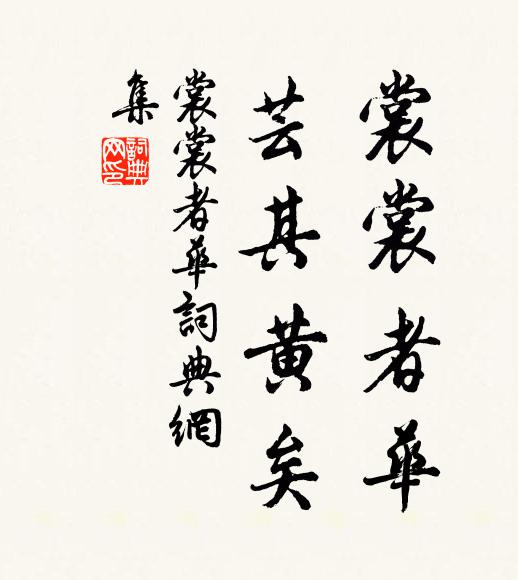 裳裳者華
芸其黄矣
裳裳者華詞典網
集
詞典
网印